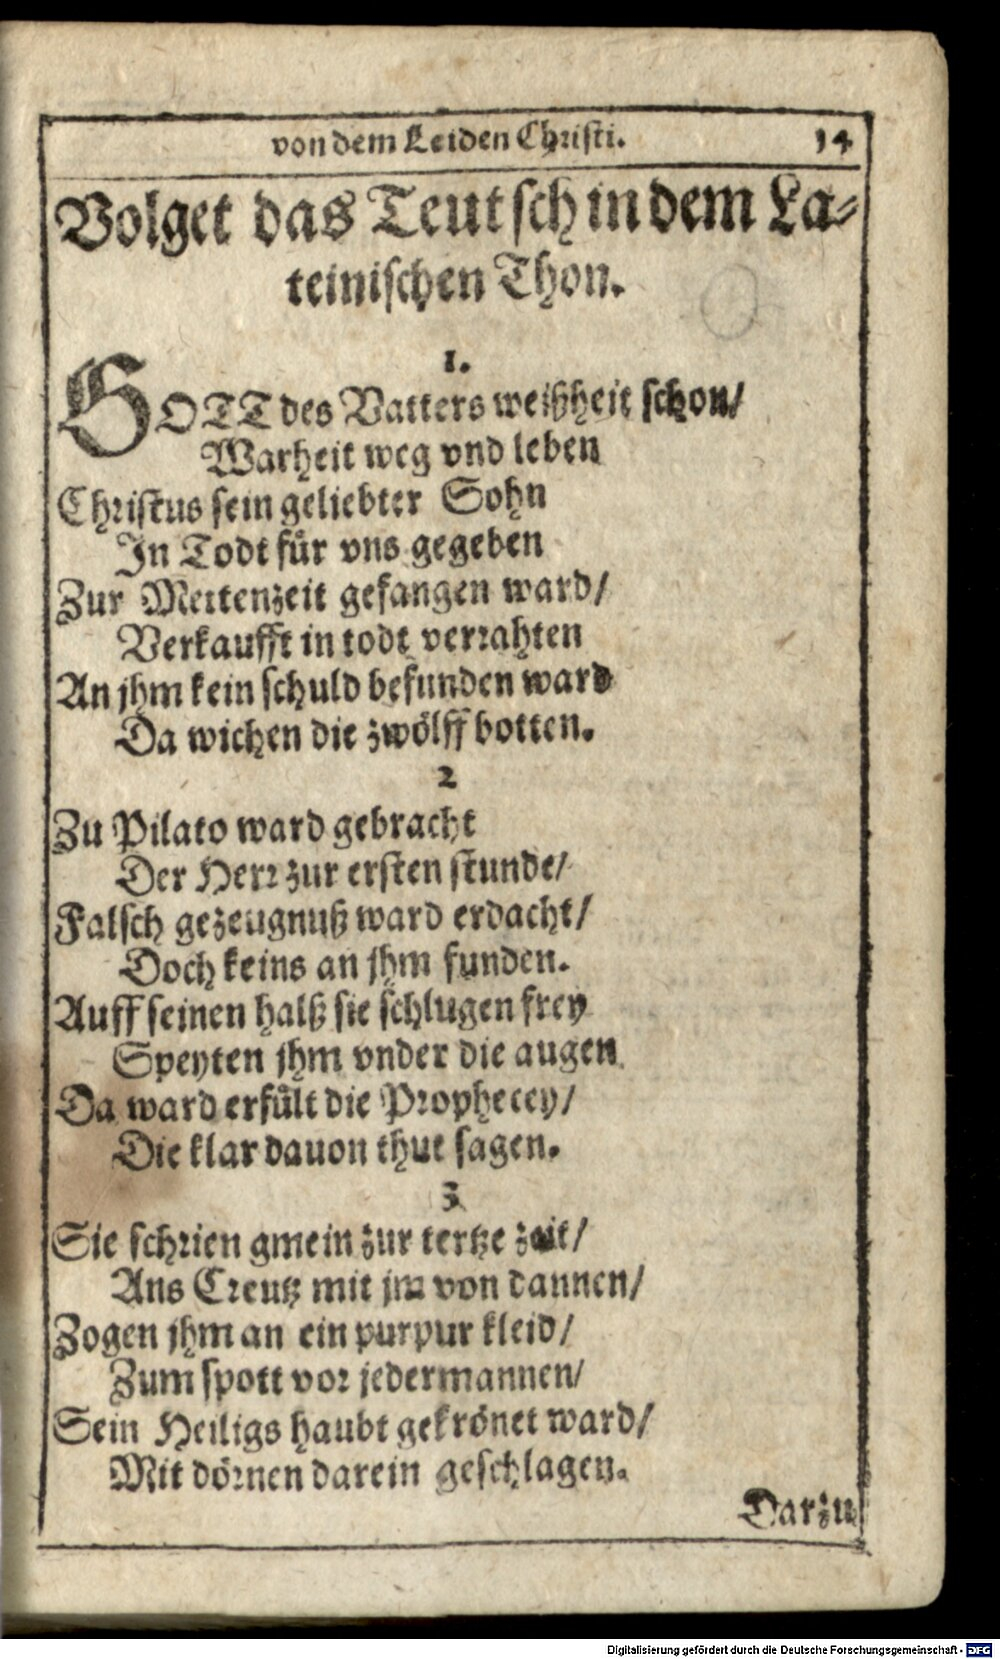 von dem Leiden Christi. 14
Volget das Teutsch in dem La-
teinischen Thon.
1.
GOTT des Vatters weißheit schon/
Warheit weg vnd leben
Christus sein geliebter Sohn
In Todt für vns gegeben
Zur Mettenzeit gefangen ward/
Verkaufft in todt verrahten
An jhm kein schuld befunden ward
Da wichen die zwölff botten.
2
Zu Pilato ward gebracht
Der Herr zur ersten stunde/
Falsch gezeugnuß ward erdacht/
Doch keins an jhm funden.
Auff seinen halß sie schlugen frey
Speyten jhm vnder die augen
Da ward erfült die Prophecey/
Die klar dauon thut sagen.
3
Sie schrien gmein zur tertze zeit/
Ans Creutz mit jm von dannen/
Zogen jhm an ein purpur kleid/
Zum spott vor jedermannen/
Sein Heiligs haubt gekrönet ward/
Mit dörnen darein geschlagen.
Darzu
Digitalisierung gefördert durch die Deutsche Forschungsgemeinschaft - DFG